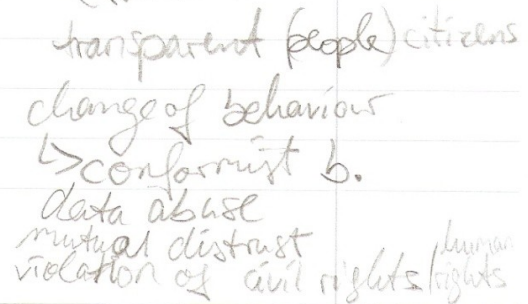 transparent (people) citizens
change of behaviour
↳ conformist b.
data abuse
mutual distrust
violation of civil rights / human rights